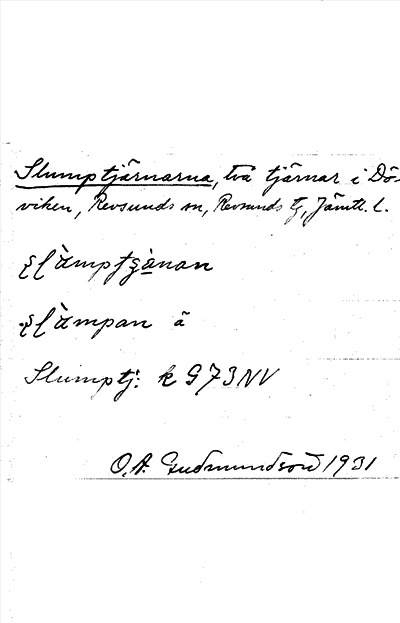 Slumptjärnarna, två tjärnar i Dö-
viken, Revsunds sn, Revsunds tg, Jämtl. l.
å
Slumptj: k G73NV
O.A. Gudmundsson 1931